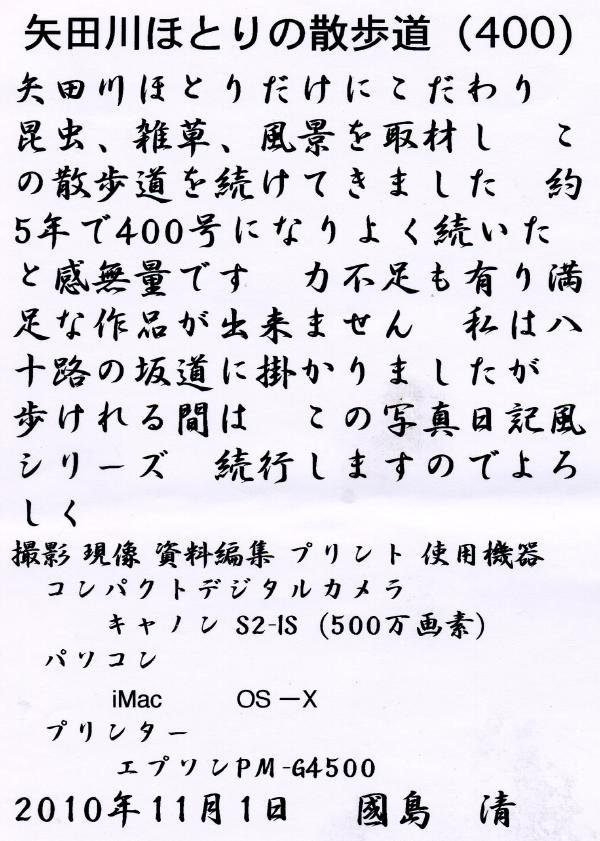 矢田川ほとりの散歩道（400）
矢田川ほとりだけにこだわり
昆虫、雑草、風景を取材し　こ
の散歩道を続けてきました　約
5年で400号になりよく続いた
と感無量です　力不足も有り満
足な作品が出来ません　私は八
十路の坂道に掛かりましたが
歩けれる間は　この写真日記風
シリーズ　続行しますのでよろ
しく
撮影 現像 資料編集 プリント 使用機器
コンパクトデジタルカメラ
キャノン S2-IS（500万画素）
パソコン
iMac　　OS－X
プリンター
エプソンPM-G4500
2010年11月1日　國島　清